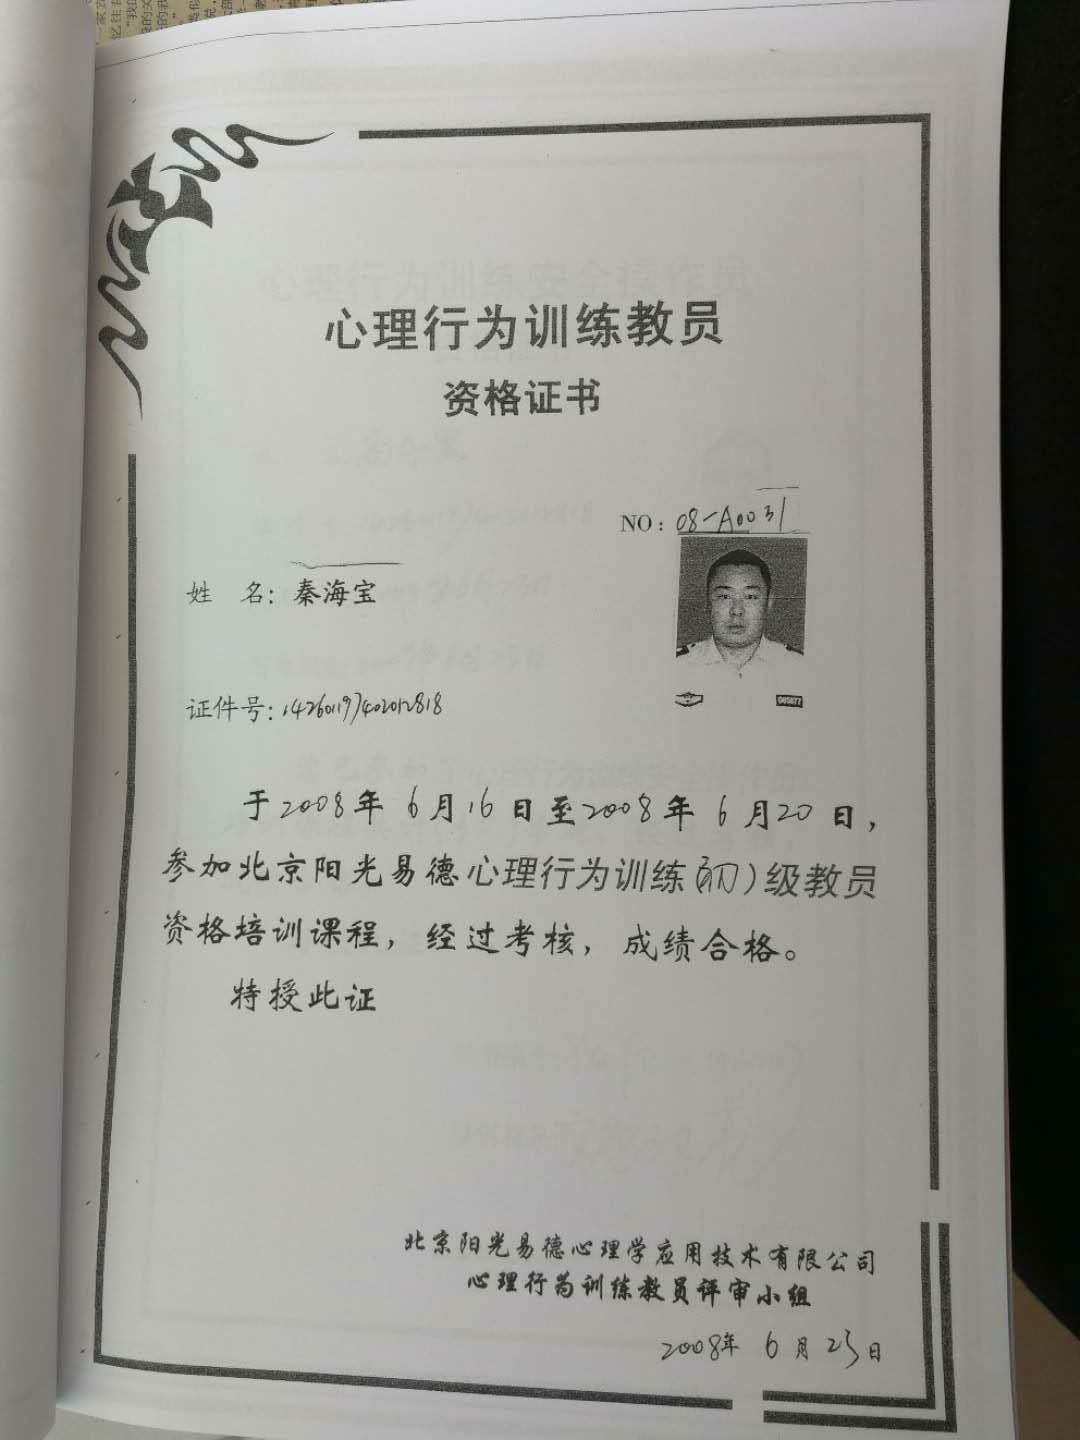 心理行为训练教员
资格证书
NO：08-A0031
姓 名：秦海宝
证件号：142601197402012818
于2008年 6月16日至2008年 6月20日，
参加北京阳光易德心理行为训练（初）级教员
资格培训课程，经过考核，成绩合格。
特授此证
北京阳光易德心理学应用技术有限公司
心理行为训练教员评审小组
2008年 6月23日